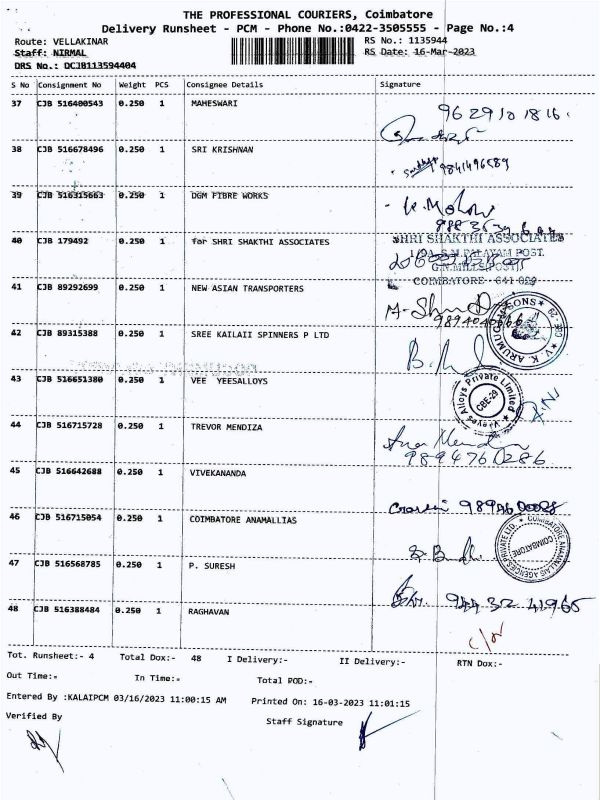 THE PROFESSIONAL COURIERS, Coimbatore
Delivery Runsheet - PCM - Phone No.:0422-3505555 - Page No.:4
Route: VELLAKINAR RS No.: 1135944
Staff: NIRMAL RS Date: 16-Mar-2023
DRS No.: DCJB113594404
S No Consignment No Weight PCS Consignee Details Signature
37 CJB 516400543 0.250 1 MAHESWARI
9629101816.
38 CJB 516678496 0.250 1 SRI KRISHNAN
9841496589
39 CJB 516315663 0.250 1 DGM FIBRE WORKS
K. Mohan
40 CJB 179492 0.250 1 for SHRI SHAKTHI ASSOCIATES
SHRI SHAKTHI ASSOCIATES
S.M.PALAYAM POST.
G.N.MILLS(POST)
COIMBATORE - 641 029
41 CJB 89292699 0.250 1 NEW ASIAN TRANSPORTERS
9894040666
V.K. ARUMUGAM SONS ★ CBE-29 ★
42 CJB 89315388 0.250 1 SREE KAILAII SPINNERS P LTD
43 CJB 516651380 0.250 1 VEE YEESALLOYS
Veeyes Alloys Private Limited
CBE-29
44 CJB 516715728 0.250 1 TREVOR MENDIZA
9894760286
45 CJB 516642688 0.250 1 VIVEKANANDA
46 CJB 516715054 0.250 1 COIMBATORE ANAMALLIAS
COIMBATORE ANAMALLAIS AGENCIES PRIVATE LTD.
COIMBATORE
47 CJB 516568785 0.250 1 P. SURESH
944 32 41965
48 CJB 516388484 0.250 1 RAGHAVAN
Tot. Runsheet:- 4 Total Dox:- 48 I Delivery:- II Delivery:- RTN Dox:-
Out Time:- In Time:- Total POD:-
Entered By :KALAIPCM 03/16/2023 11:00:15 AM Printed On: 16-03-2023 11:01:15
Verified By Staff Signature